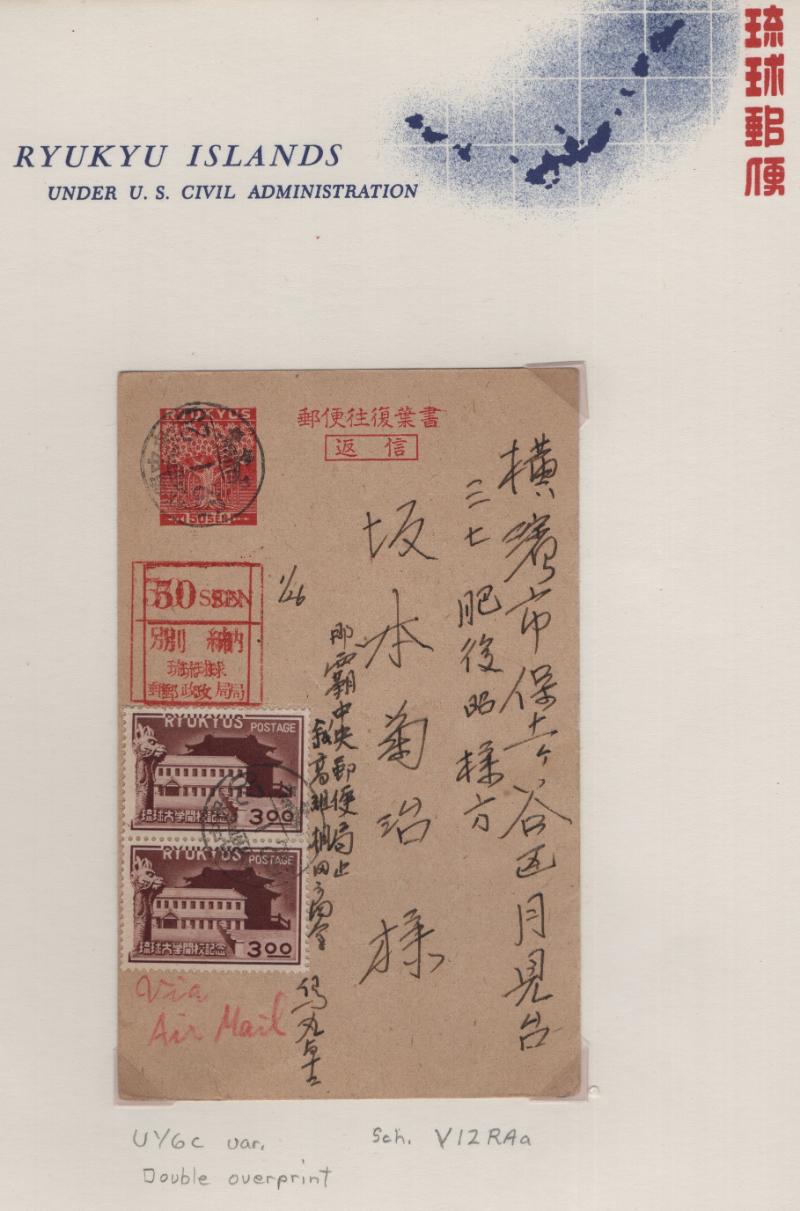 琉球郵便
RYUKYU ISLANDS
UNDER U. S. CIVIL ADMINISTRATION
RYUKYUS
50 SEN
郵便往復葉書
返信
横濱市保土ヶ谷区月見台
三七 肥後昭様方
坂本菊治様
1/26
50 SEN
別納
琉球
郵政局
那覇中央郵便局止
RYUKYUS
POSTAGE
琉球大学開校記念
3.00
RYUKYUS
POSTAGE
琉球大学開校記念
3.00
Via
Air Mail
UY6c var.
Sch. V12RAa
Double overprint